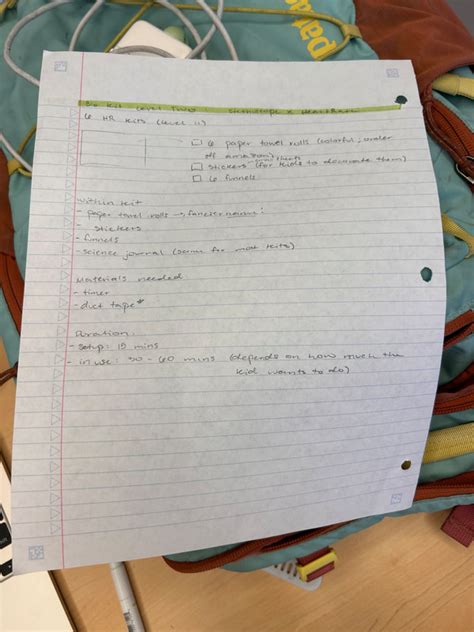 Kit Level Two Stethoscope &
6 HR Kits (Level 11)
6 paper towel rolls (colorful, order
off amazon)
stickers (for kids to decorate them)
6 funnels
within kit
- paper towel rolls →
- stickers
- funnels
- science journal (same for most kits)
Materials needed:
- timer
- duct tape*
Duration:
- setup: 15 mins
- in use: 50-60 mins (depends on how much the
kid wants to do)
pata